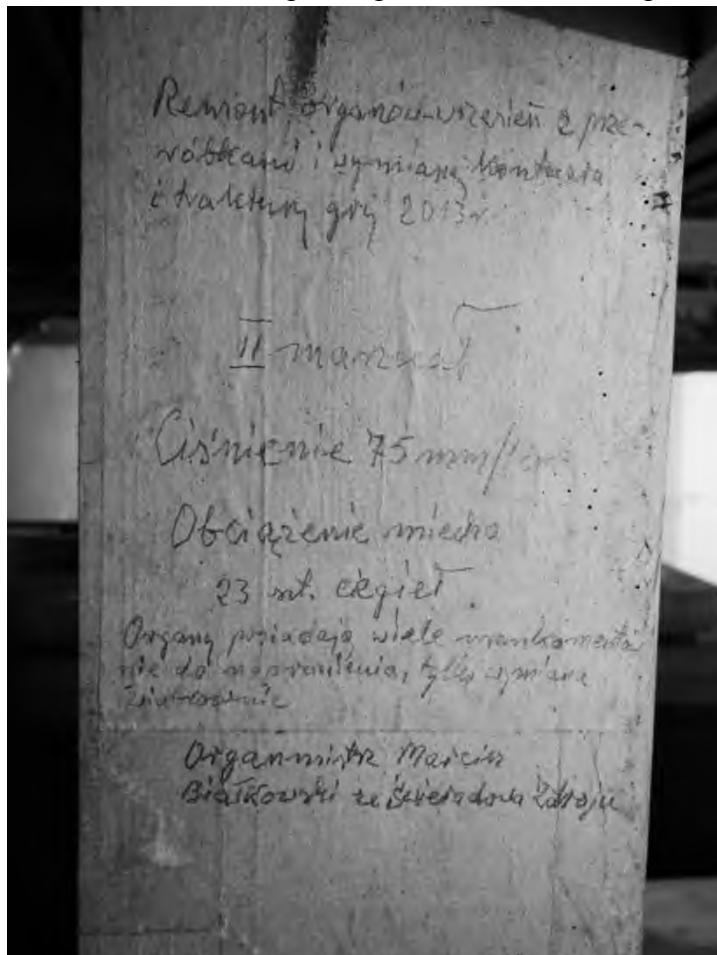 Remont organów wrzesień z prze-
róbkami i wymianą kontuaru
i traktury gry 2013r.
II manuał
Ciśnienie 75 mm/
Obciążenie miecha
23 szt. cegieł
Organy posiadają wiele mankamentów
nie do naprawienia, tylko wymiana
Organmistrz Marcin
Białkowski ze Świeradowa Zdroju